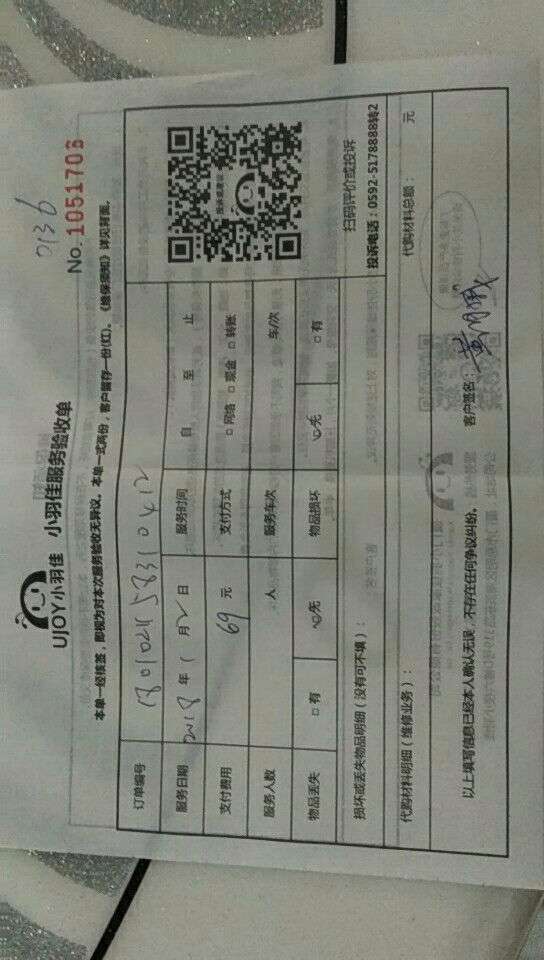 0136
UJOY小羽佳 小羽佳服务验收单
No. 1051703
本单一经核签，即视为对本次服务验收无异议。本单一式两份，客户留存一份(红)。《维保须知》详见封面。
订单编号
服务日期 2018 年 1 月 2 日 服务时间 自 至 止
支付费用 69 元 支付方式 □ 网络 □ 现金 □ 转账
服务人数 人 服务车次 车/次
物品丢失 □ 有 无 物品损坏 无 □ 有
扫码评价或投诉
投诉电话：0592-5178888转2
损坏或丢失物品明细（没有可不填）：
代购材料明细（维修业务）： 代购材料总额： 元
以上填写信息已经本人确认无误，不存在任何争议纠纷。 客户签名：